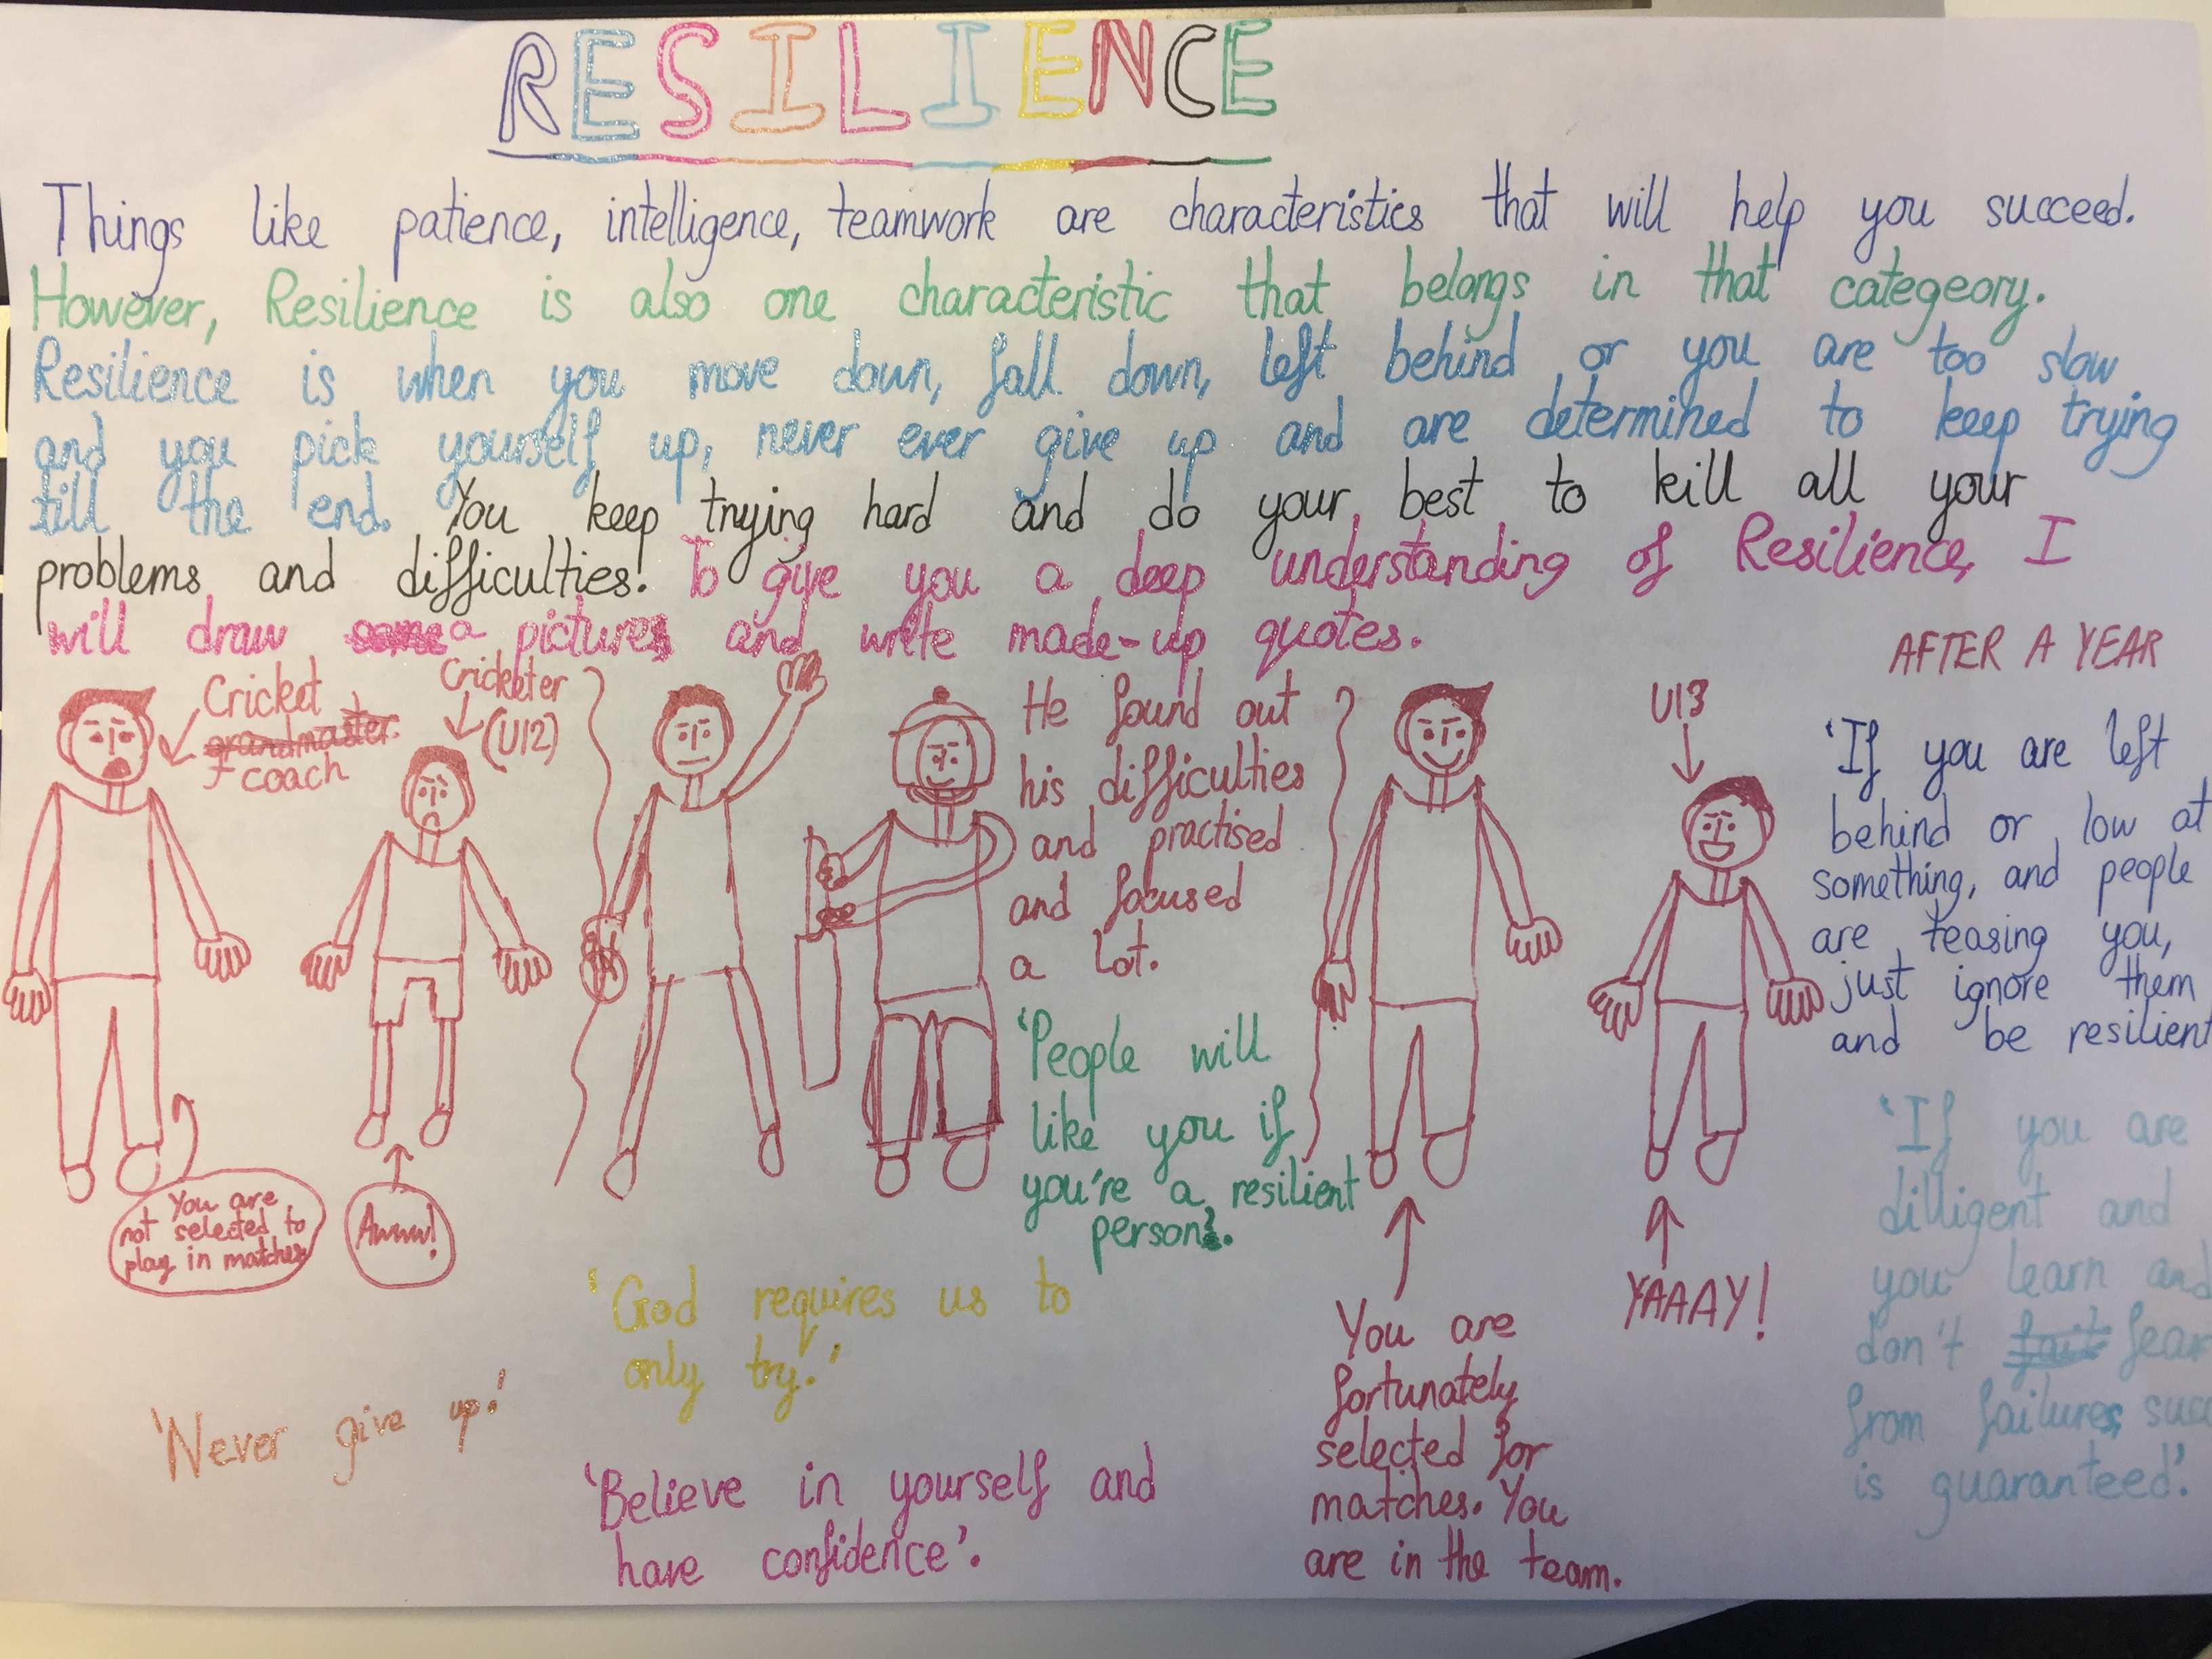 RESILIENCE
Things like patience, intelligence, teamwork are characteristics that will help you succeed.
However, Resilience is also one characteristic that belongs in that categeory.
Resilience is when you move down, fall down, left behind or you are too slow
and you pick yourself up, never ever give up and are determined to keep trying
till the end. You keep trying hard and do your best to kill all your
problems and difficulties! To give you a deep understanding of Resilience, I
will draw a picture and write made-up quotes.
Cricket
grandmaster.
coach
Cricketer
(U12)
You are
not selected to
play in matches
Awww!
He found out
his difficulties
and practised
and focused
a lot.
'People will
like you if
you're a resilient
person.
AFTER A YEAR
U13
You are
fortunately
selected for
matches. You
are in the team.
YAAAY!
'If you are left
behind or low at
something, and people
are teasing you,
just ignore them
and be resilient
'If you are
dilligent and
you learn and
don't fear
from failures,
is guaranteed'.
'God requires us to
only try.'
'Never give up!'
'Believe in yourself and
have confidence'.